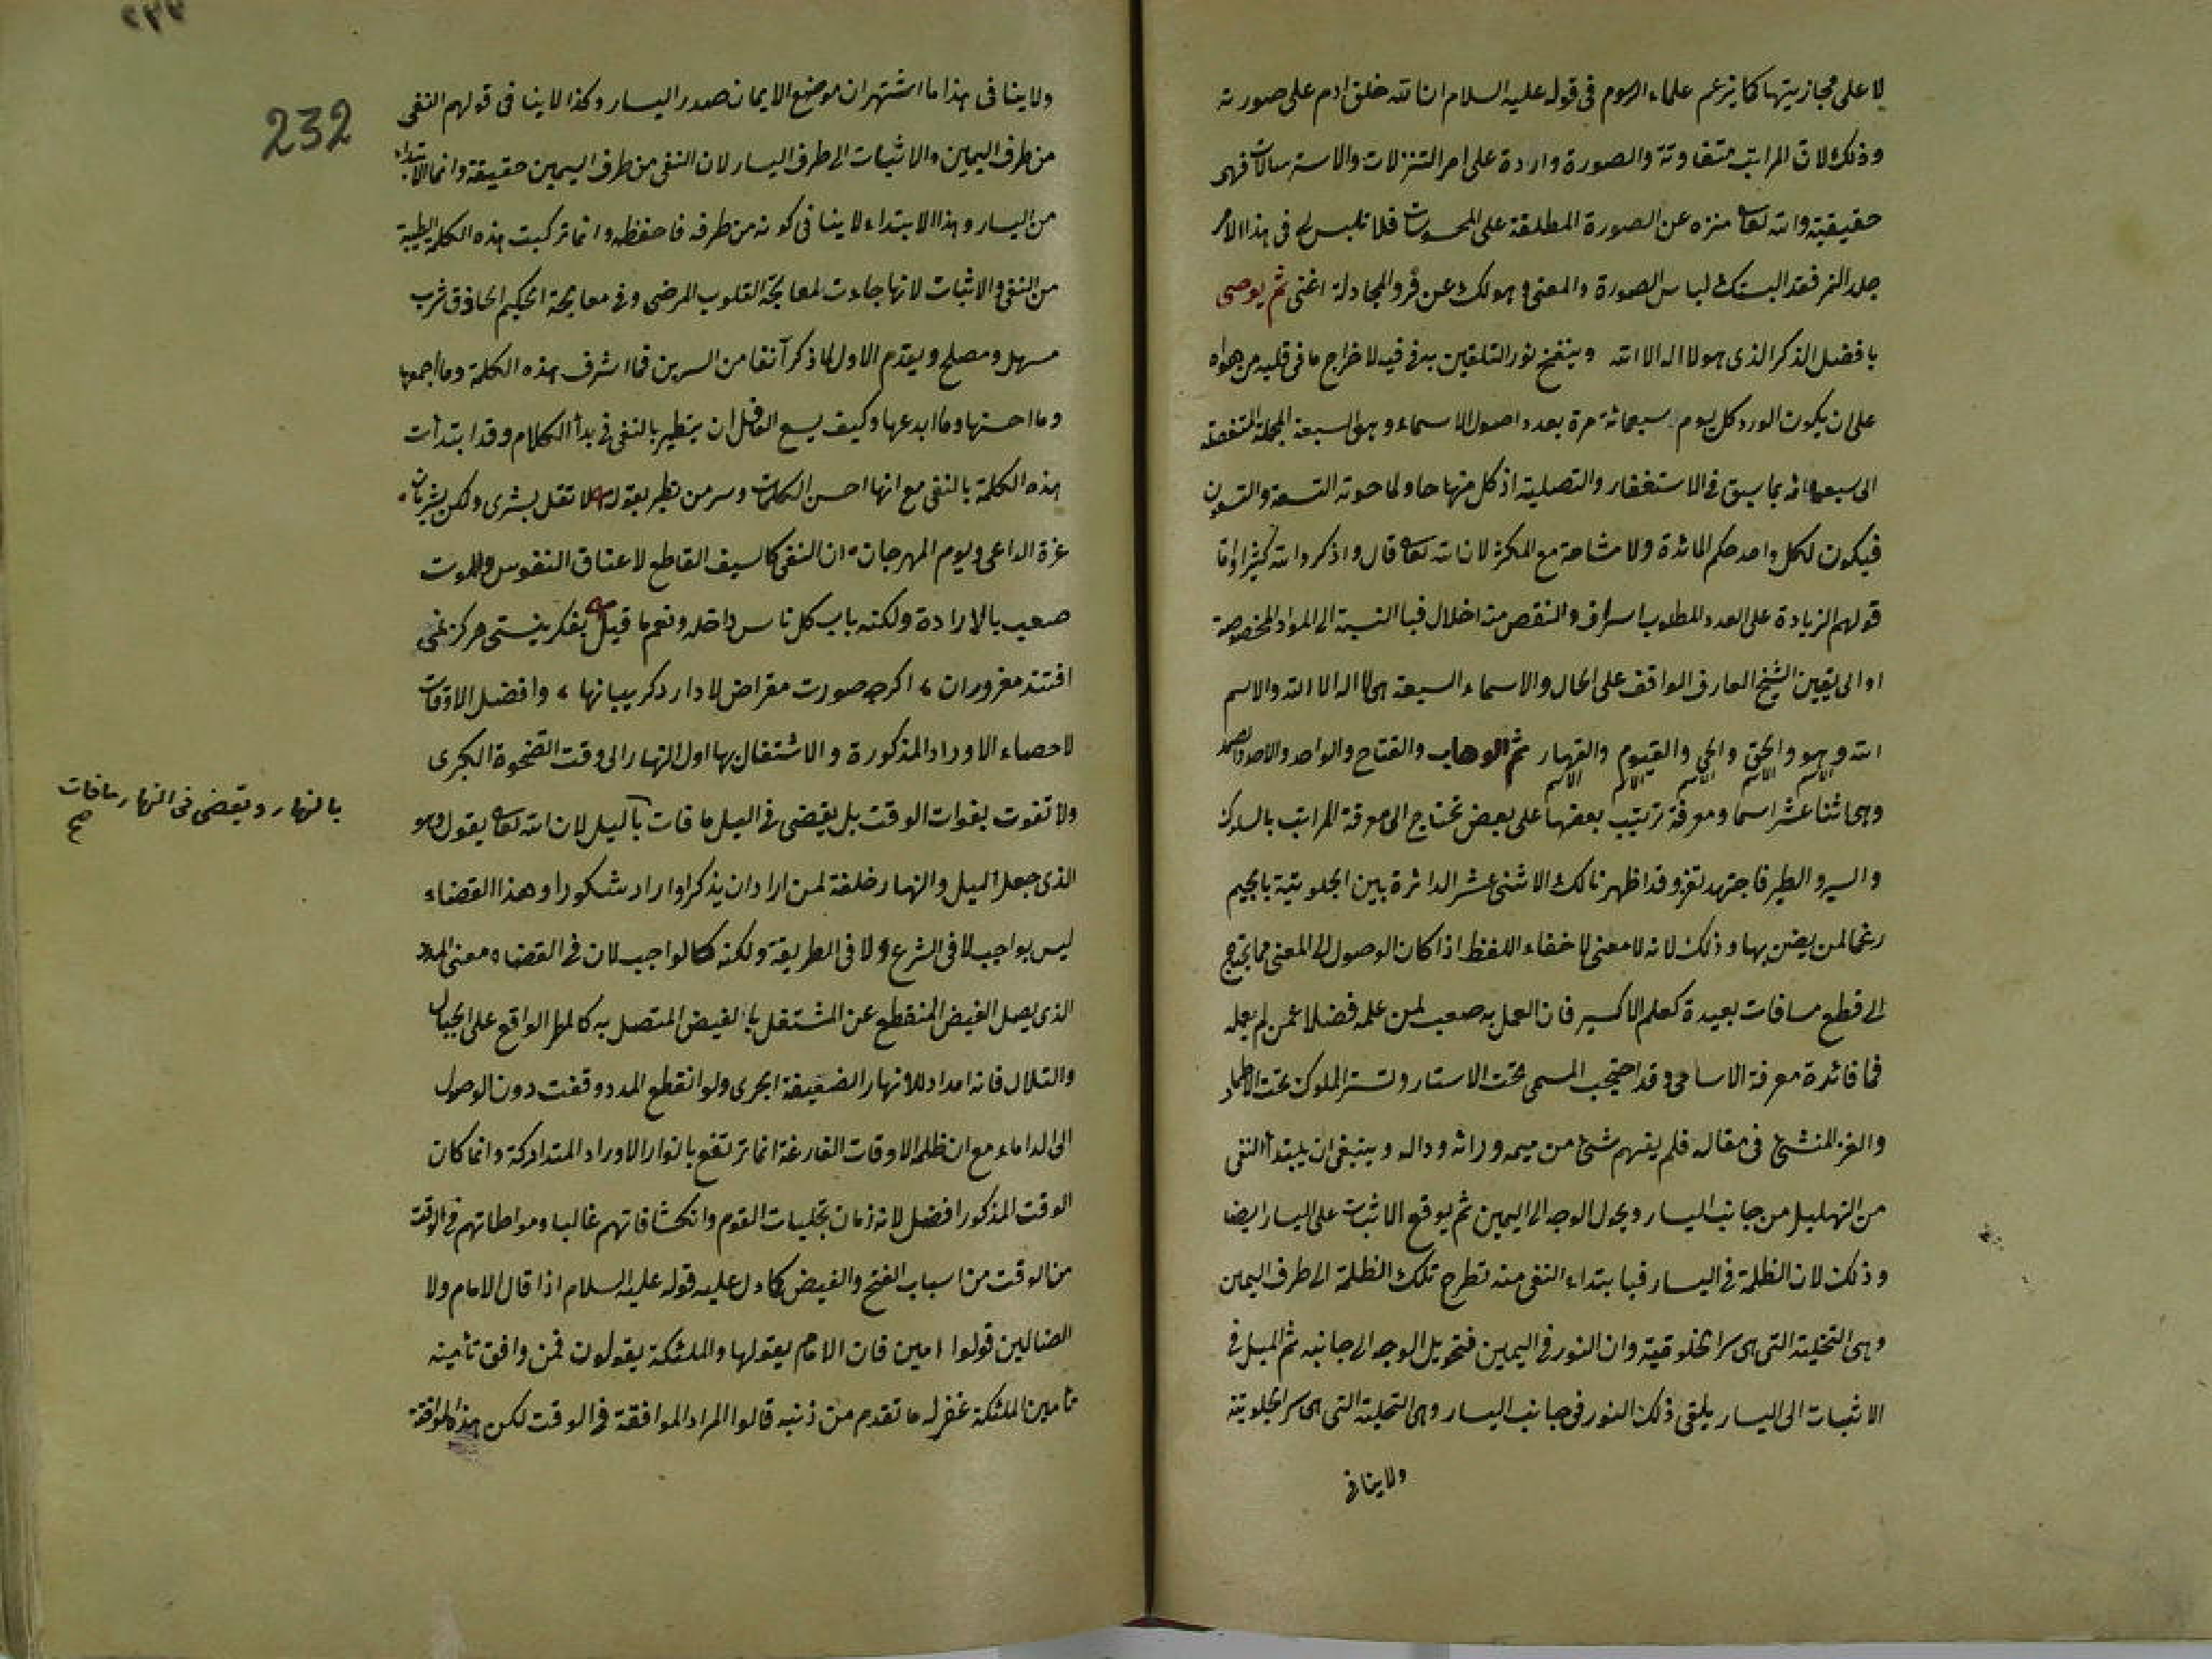 لا على مجازيتها كما يزعم علماء الرسوم فى قوله عليه السلام ان الله خلق ادم على صورته
وذلك لان المراتب متفاوتة والصورة واردة على امر التنزلات والاسترسالات فهى
حقيقية والله تعالى منزه عن الصورة المطلقة على المحسوسات فلا تلبس لى فى هذا الامر
جلد النمر فقد البستك لباس الصورة والمعنى وهو لك عن فرو المجادلة اغنى ثم يوصى
بافضل الذكر الذى هو لا اله الا الله وينفخ نور التلقين به فى فيه لاخراج ما فى قلبه من هواه
على ان يكون الورد كل يوم سبعمائة مرة بعدد اصول الاسماء وهى السبعة المجملة المتفصلة
الى سبعمائة بما سبق فى الاستغفار والتصلية اذ كل منها حاو لما حوته التسعة والتسعون
فيكون لكل واحد حكم المائدة ولا مشاحة مع المكثر لان الله تعالى قال واذكروا الله كثيرا واما
قولهم الزيادة على العدد المطلوب اسراف والنقص منه اخلال فبالنسبة الى المواد المخصوصة
او الى يقين الشيخ العارف الواقف على الحال والاسماء السبعة هى لا اله الا الله والاسم
الله وهو والحق والحى والقيوم والقهار ثم الوهاب والفتاح والواحد والاحد والصمد
الاسم الاسم الاسم الاسم الاسم
وهى اثنا عشر اسما ومعرفة ترتيب بعضها على بعض تحتاج الى معرفة المراتب بالسلوك
والسير والطير فاجتهد تفز وقد اظهرنا لك الاثنى عشر الدائرة بين الجلوتية بالجيم
رغما لمن يضن بها وذلك لانه لا معنى لاخفاء اللفظ اذا كان الوصول الى المعنى مما يحتاج
الى قطع مسافات بعيدة كعلم الاكسير فان العمل به صعب لمن علمه فضلا عمن لم يعمله
فما فائدة معرفة الاسامى وقد احتجب المسمى تحت الاستار وتستر الملوك تحت الاطمار
والغز المنشئ فى مقاله فلم يفهم شئ من ميمه ورائه وداله وينبغى ان يبتدأ النفى
من التهليل من جانب اليسار ويحول الوجه الى اليمين ثم يوقع الاثبات على اليسار ايضا
وذلك لان الظلمة فى اليسار فبابتداء النفى منه تطرح تلك الظلمة الى طرف اليمين
وهى التخلية التى هى سر الخلوتية وان النور فى اليمين فتحويل الوجه الى جانبه ثم الميل فى
الاثبات الى اليسار يلقى ذلك النور فى جانب اليسار وهى التحلية التى هى سر الجلوتية
ولا ينافى
232
ولا ينافى هذا ما اشتهر ان موضع الايمان صدر اليسار وكذا لا ينافى قولهم النفى
من طرف اليمين والاثبات الى طرف اليسار لان النفى من طرف اليمين حقيقة وانما الابتداء
من اليسار وهذا الابتداء لا ينافى كونه من طرفه فاحفظه وانما تركبت هذه الكلمة الطيبة
من النفى والاثبات لانها جاءت لمعالجة القلوب المرضى وفى معالجة الحكيم الحاذق شرب
مسهل ومصلح ويقدم الاول لما ذكر آنفا من السرين فما اشرف هذه الكلمة وما اجمعها
وما احسنها وما ابدعها وكيف يسع العاقل ان يتطير بالنفى فى بدأ الكلام وقد ابتدأت
هذه الكلمة بالنفى مع انها احسن الكلمات وسر من تطير بقوله لا تقل بشرى ولكن بشريان
غزة الداعى ويوم المهرجان ان النفى كالسيف القاطع لاعناق النفوس والموت
صعب بالارادة ولكنه باب كل ناس داخله ونعم ما قيل بفكر نيستى هركز نمى
افتند مغروران اكرچه صورت مقراض لا دارد كريبانها وافضل الاوقات
لاحصاء الاوراد المذكورة والاشتغال بها اول النهار الى وقت الضحوة الكبرى
ولا تفوت بفوات الوقت بل يقضى فى الليل ما فات بالليل لان الله تعالى يقول وهو
بالنهار ويقضى فى النهار ما فات صح
الذى جعل الليل والنهار خلفة لمن اراد ان يذكر او اراد شكورا وهذا القضاء
ليس بواجب لا فى الشرع ولا فى الطريقة ولكنه كالواجب لان فى القضاء معنى المدد
الذى يصل الفيض المنقطع عن المشتغل بالفيض المتصل به كالمطر الواقع على الجبال
والتلال فانه امداد للانهار الضعيفة الجرى ولو انقطع المدد وقفت دون الوصول
الى الداماء مع ان ظلمة الاوقات الفارغة انما ترتفع بانوار الاوراد المتداركة وانما كان
الوقت المذكور افضل لانه زمان تجليات القوم وانكشافاتهم غالبا ومواطاتهم فى الوقت
من الوقت من اسباب الفتح والفيض كما دل عليه قوله عليه السلام اذا قال الامام ولا
الضالين قولوا امين فان الامام يقولها والملئكة يقولون فمن وافق تأمينه
تأمين الملئكة غفر له ما تقدم من ذنبه قالوا المراد الموافقة فى الوقت لكن هذه الموافقة